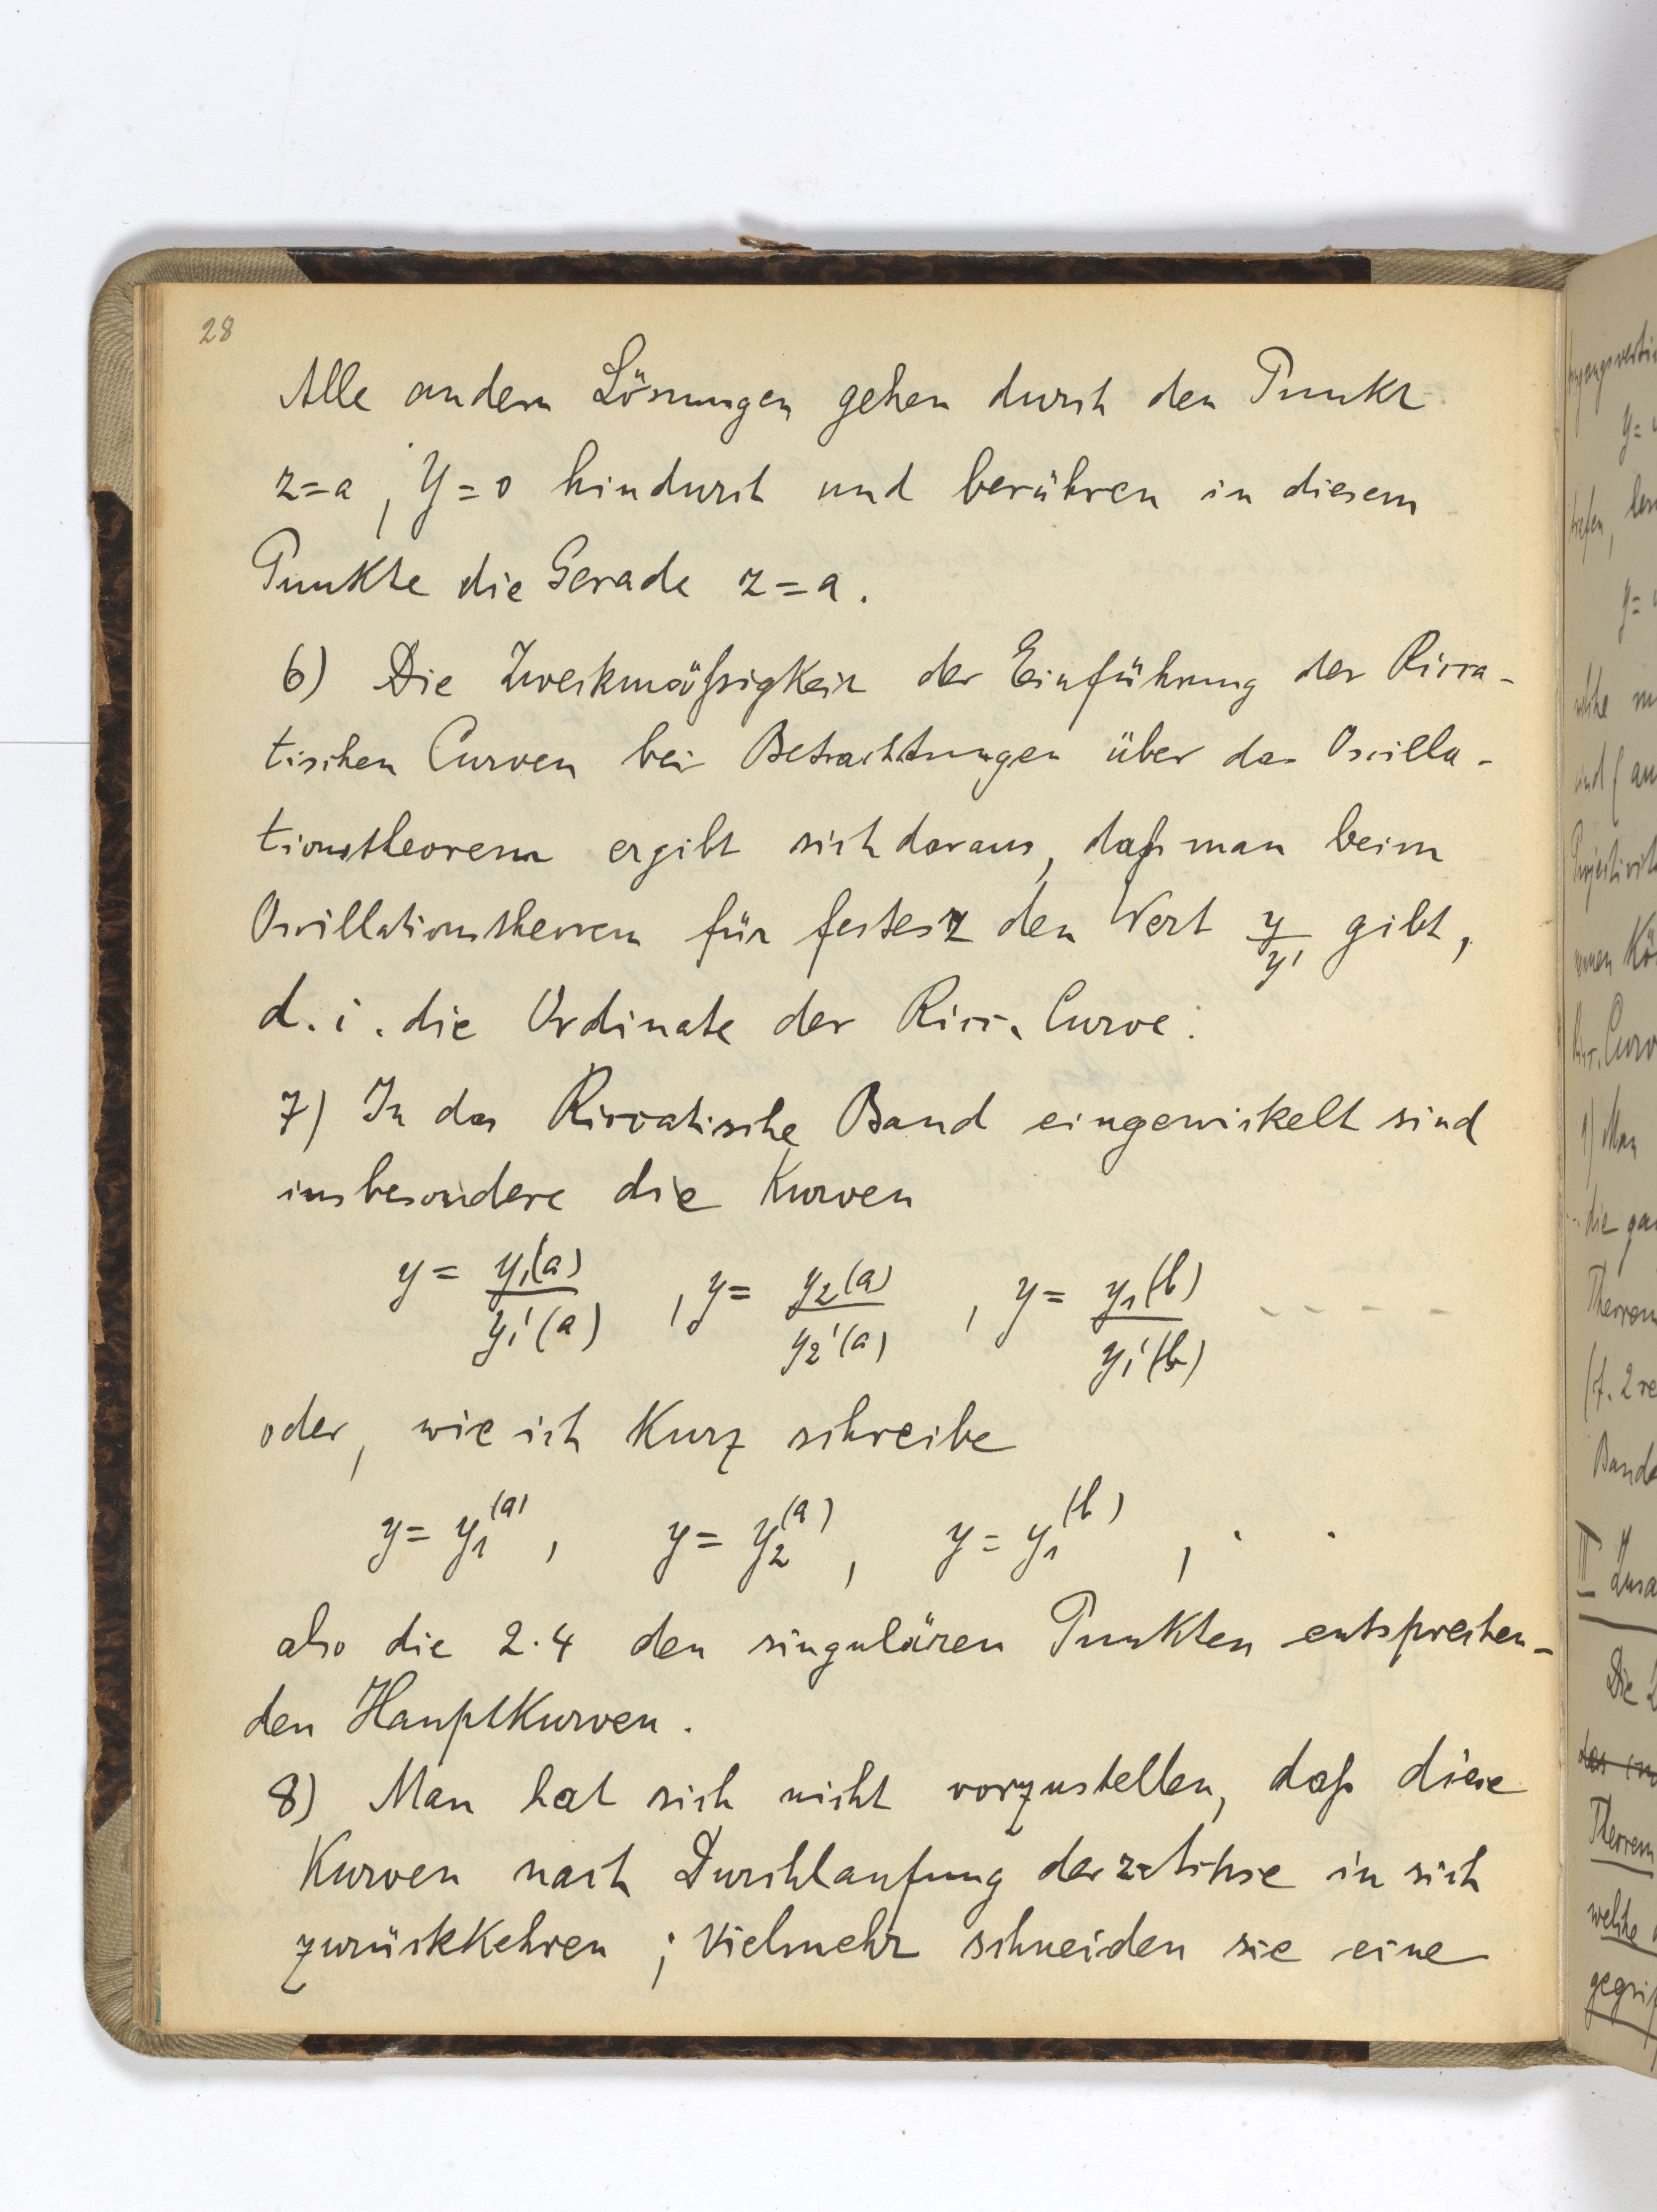 28
Alle andern Lösungen gehen durch den Punkt
z=a, Y=0 hindurch und berühren in diesem
Punkte die Gerade z=a.
6) Die Zweckmäßigkeit der Einführung der Ricca-
tischen Curven bei Betrachtungen über das Oscilla-
tionstheorem ergibt sich daraus, daß man beim
Oscillationstheorem für festes z den Wert y/y' gibt,
d.i. die Ordinate der Ricc. Curve.
7) In das Riccatische Band eingewickelt sind
insbesondere die Kurven
y = y₁(a)/y₁'(a) , y = y₂(a)/y₂'(a) , y = y₁(b)/y₁'(b) - - - - -
oder, wie ich kurz schreibe
y = y₁^(a), y = y₂^(a), y = y₁^(b), . .
also die 2·4 den singulären Punkten entsprechen-
den Hauptkurven.
8) Man hat sich nicht vorzustellen, daß diese
Kurven nach Durchlaufung der z-Achse in sich
zurückkehren; vielmehr schneiden sie eine